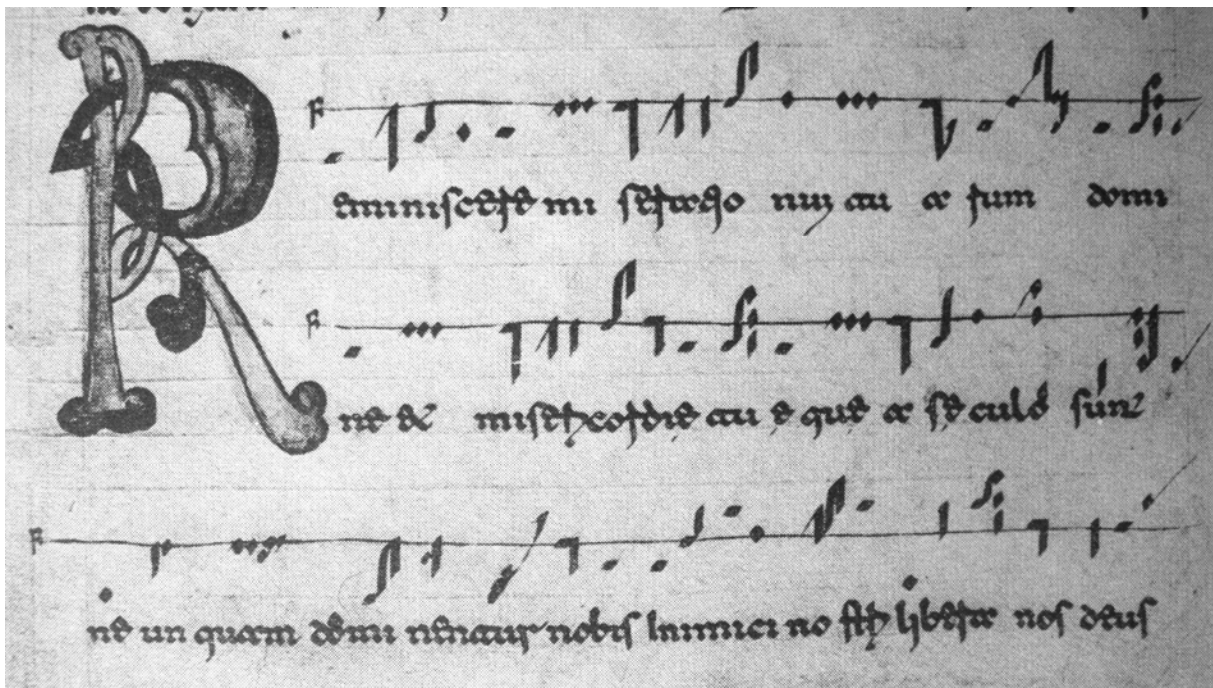 Reminiscere mi seratio num tu a rum domi
ne & misericordie tu e que a se culo sunt
ne un quam domi nentur nobis Inimici no stri libera nos deus